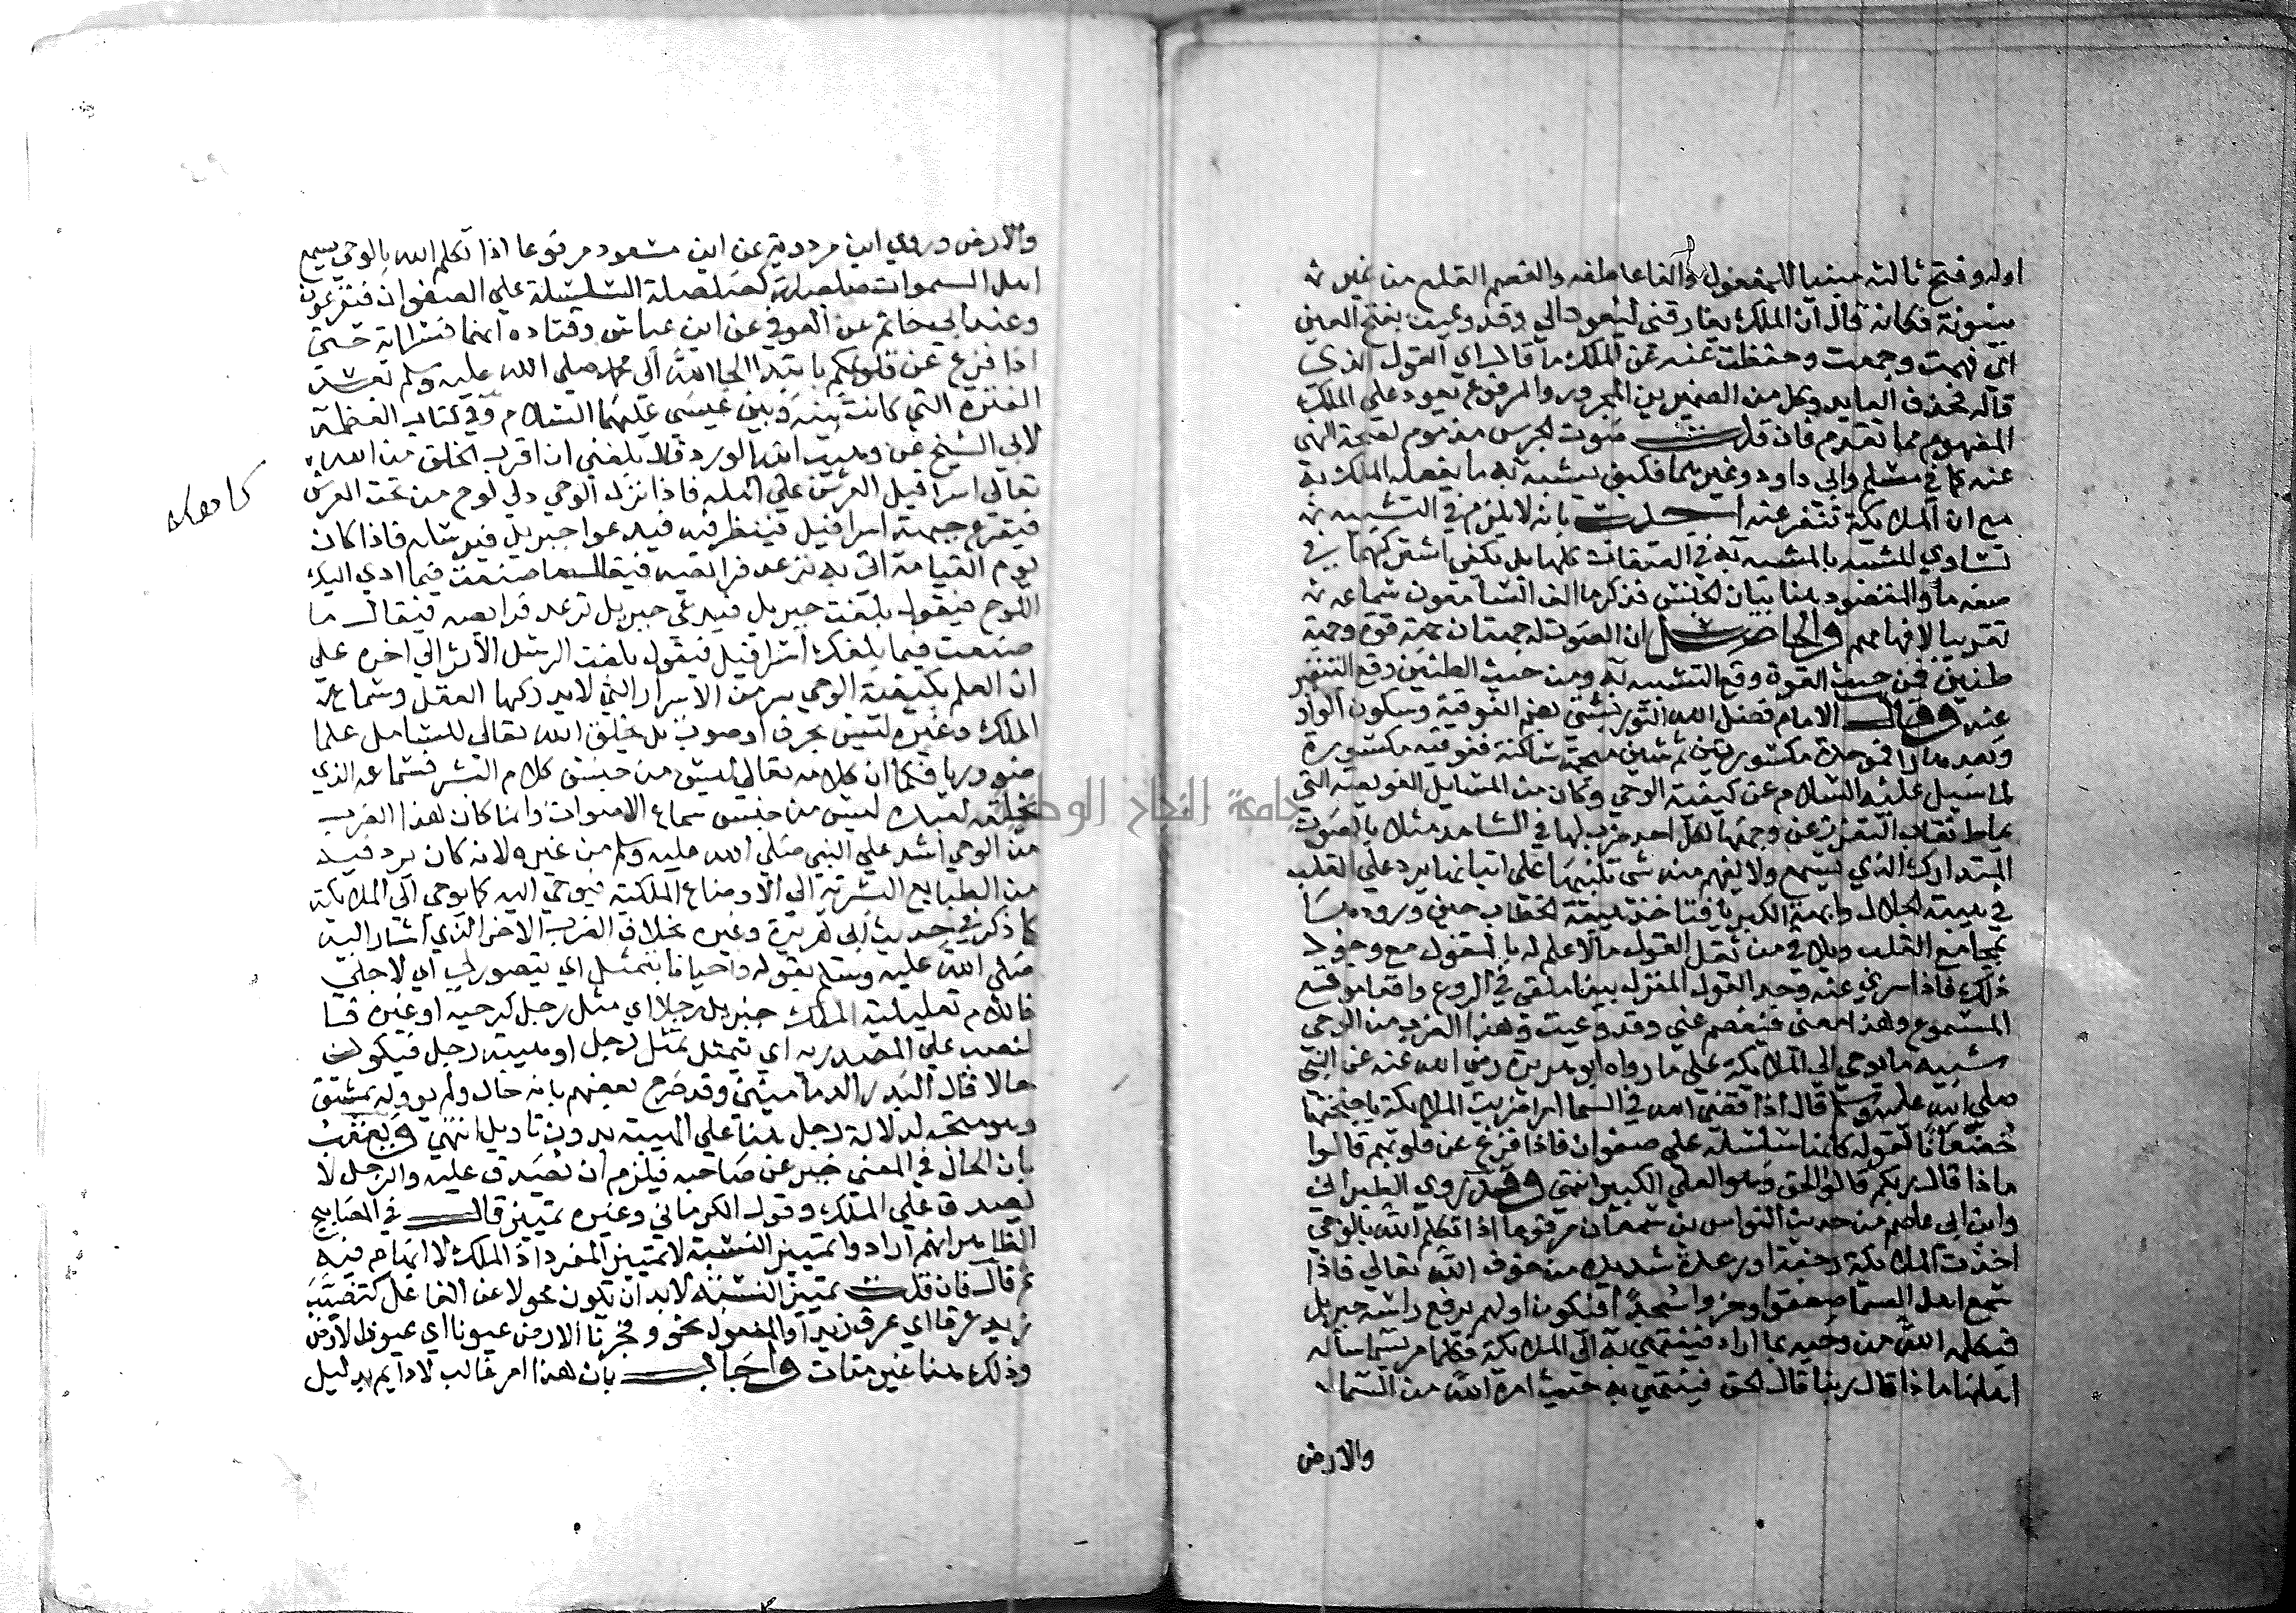 اوله وفتح ثالثه مبنيا للمفعول والفا عاطفه والفصم القطع من غير
بينونة فكانه قال ان الملك يفارقني ليعود الي وقد وعيت بفتح العين
اي فهمت وجمعت وحفظت عنه عن الملك ما قال اي القول الذي
قاله فحذف العايد وكل من الضميرين المجرور والمرفوع يعود علي الملك
المفهوم مما تقدم فان قلت صوت الجرس مذموم لصحة النهي
عنه كما في مسلم وابي داود وغيرهما فكيف يشبه به ما يفعله الملك به
مع ان الملايكة تنفر عنه اجيب بانه لا يلزم في التشبيه
تساوي المشبه بالمشبه به في الصفات كلها بل يكفي اشتراكهما في
صفه ما والمقصود هنا بيان الجنس فذكر ما الف السامعون سماعه
تقريبا لافهامهم والحاصل ان الصوت له جهتان جهة قوة وجهة
طنين فمن حيث القوة وقع التشبيه به ومن حيث الطنين وقع التنفير
عنه وقال الامام فضل الله التوربشتي بضم الفوقية وسكون الواو
وبعدها را فموحدة مكسورتين ثم شين معجمة ساكنة ففوقيه مكسورة
لما سيل عليه السلام عن كيفية الوحي وكان من المسايل العويصة التي
يماط نقاب التعزز عن وجهها لكل احد ضرب لها في الشاهد مثلا بالصوت
المتدارك الذي يسمع ولا يفهم منه شي تنبيها علي اتيانها يرد علي القلب
في هيبة الجلال وابهة الكبريا فتاخذ هيبة الخطاب حين ورودها
بمجامع القلب ويلاقي من ثقل القول ما لا علم له بالقول مع وجود
ذلك فاذا سري عنه وجد القول المنزل بينا ملقي في الروع واقعا موقع
المسموع وهذا معني فيفصم عني وقد وعيت وهذا الضرب من الوحي
شبيه ما يوحي الي الملايكة علي ما رواه ابو هريرة رضي الله عنه عن النبي
صلي الله عليه وسلم قال اذا قضي الله في السما امرا ضربت الملايكة باجنحتها
خضعانا لقوله كانها سلسلة علي صفوان فاذا فزع عن قلوبهم قالوا
ماذا قال ربكم قالوا الحق وهو العلي الكبير انتهي وقد روي الطبراني
وابن ابي عاصم من حديث النواس بن سمعان مرفوعا اذا تكلم الله بالوحي
اخذت الملايكة رجفة او رعدة شديدة من خوف الله تعالي فاذا
سمع اهل السما صعقوا وخروا سجدا فيكون اولهم يرفع راسه جبريل
فيكلمه الله من وحيه بما اراد فينتهي به الي الملايكة فكلما مر بسما ساله
اهلها ماذا قال ربنا قال الحق فينتهي به حيث امره الله من السما
والارض
والارض وروي ابن مردويه عن ابن مسعود مرفوعا اذا تكلم الله بالوحي يسمع
اهل السموات صلصلة كصلصلة السلسلة علي الصفوان فيفزعون
وعند ابي حاتم عن العوفي عن ابن عباس وقتاده انهما فسرا اية حتي
اذا فزع عن قلوبهم بابتدا ايحا الله الي محمد صلي الله عليه وسلم بعد
الفترة التي كانت بينه وبين عيسي عليهما السلام وفي كتاب العظمة
لابي الشيخ عن وهيب ابن الورد قال بلغني ان اقرب الخلق من الله
تعالي اسرافيل العرش علي كاهله فاذا نزل الوحي دلي لوح من تحت العرش
كاهله
فيقرع جبهة اسرافيل فينظر فيه فيدعوا جبريل فيرسله فاذا كان
يوم القيامة اتي به ترعد فرايصه فيقال ما صنعت فيما ادي اليك
اللوح فيقول بلغت جبريل فيدعي جبريل ترعد فرايصه فيقال ما
صنعت فيما بلغك اسرافيل فيقول بلغت الرسل الاثر الي اخره علي
ان العلم بكيفية الوحي سر من الاسرار التي لا يدركها العقل وسماع
الملك وغيره ليس بحرف او صوت بل يخلق الله تعالي للسامع علما
ضروريا فكما ان كلامه تعالي ليس من جنس كلام البشر فسماعه الذي
يخلقه لعبده ليس من جنس سماع الاصوات وانما كان هذا الضرب
من الوحي اشد علي النبي صلي الله عليه وسلم من غيره ولانه كان يرد فيه
من الطبايع البشرية الي الاوضاع الملكية فيوحي اليه كما يوحي الي الملايكة
كما ذكر في حديث ابي هريرة وغيره بخلاف الضرب الاخر الذي اشار اليه
صلي الله عليه وسلم بقوله واحيانا يتمثل اي يتصور لي اي لاجلي
فاللام تعليلية الملك جبريل رجلا اي مثل رجل كدحيه او غيره
لنصب علي المصدريه اي يتمثل تمثل رجل او هيئة رجل فيكون
حالا قال البدر الدماميني وقد صرح بعضهم بانه حال ولم يووله بمشتق
وهو متجه لدلالة رجل هنا علي الهيئة بدون تاويل انتهي وتعقب
بان الحال في المعني خبر عن صاحبه فيلزم ان تصدق عليه والرجل لا
يصدق علي الملك وقول الكرماني وغيره تمييز قال في المصابيح
الظاهر انهم ارادوا تمييز النسبة لا تمييز المفرد اذ الملك لا ابهام فيه
ثم قال فان قلت تمييز النسبة لابد ان تكون محولا عن الفاعل كتصبب
زيد عرقا اي عرق زيد او المفعول نحو وفجرنا الارض عيونا اي عيون الارض
وذلك هنا غير متات واجاب بان هذا امر غالب لا دايم بدليل
جامعة النجاح الوطنية